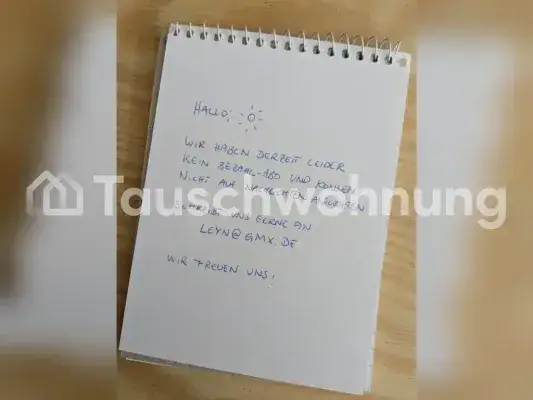 HALLO,
WIR HABEN DERZEIT LEIDER
KEIN BEZAHL-ABO UND KÖNNEN
NICHT AUF NACHRICHTEN ANTWORTEN
SCHREIBT UNS GERNE AN
LEYN@GMX.DE
WIR FREUEN UNS!
Tauschwohnung